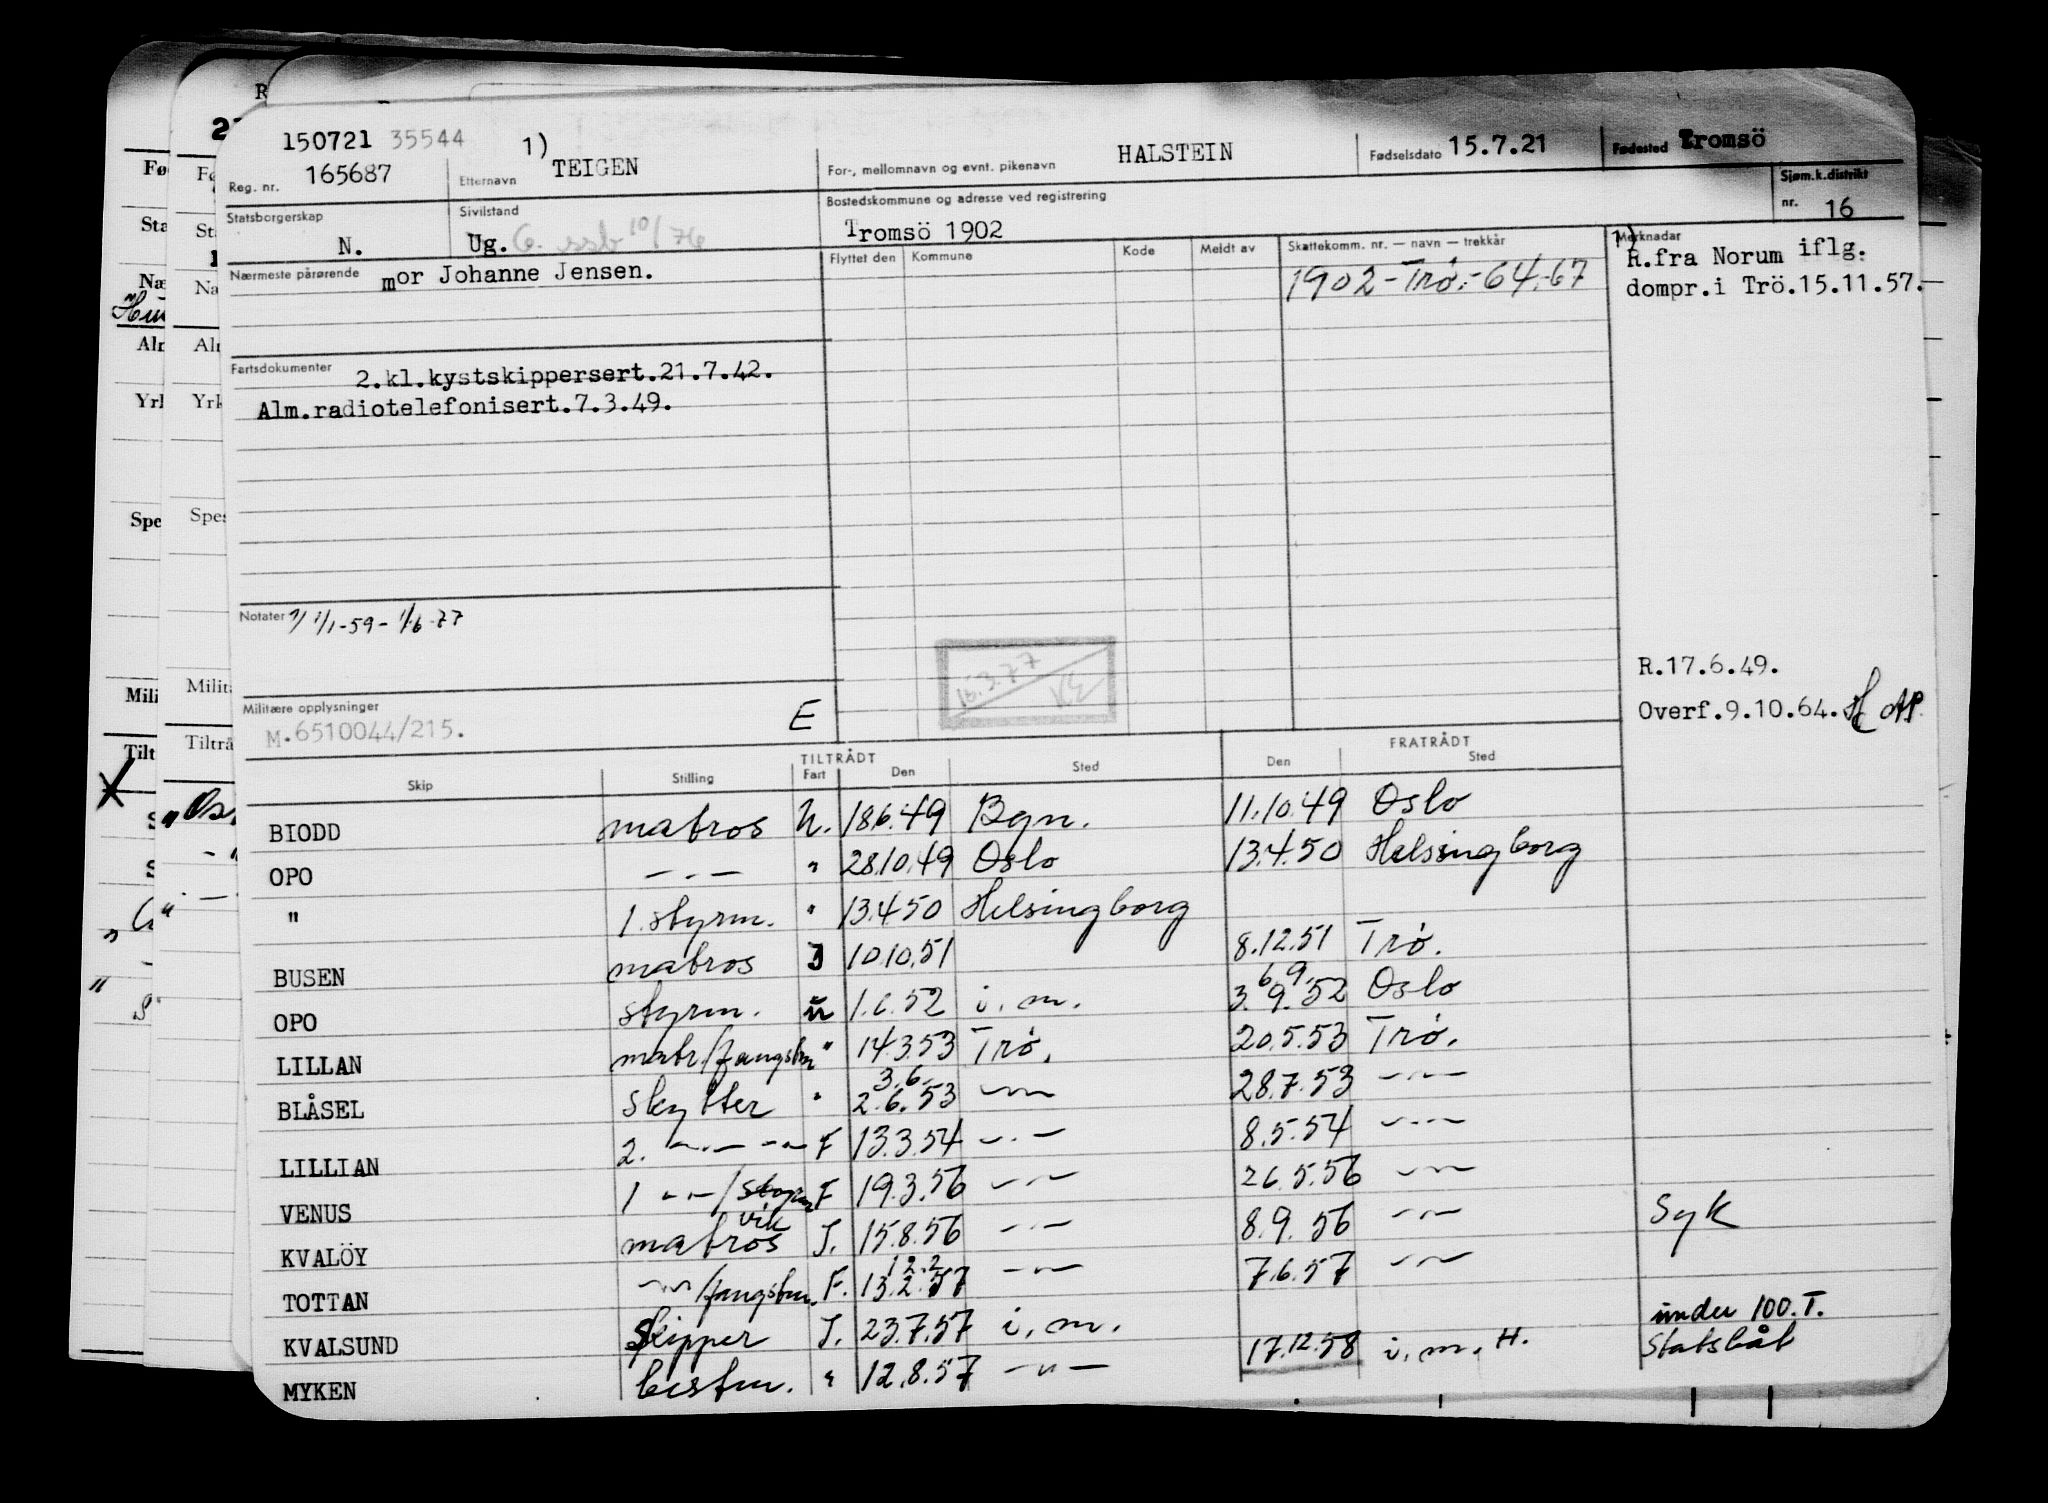 150721 35544
Reg. nr. 165687
1)
Etternavn TEIGEN
For-, mellomnavn og evnt. pikenavn HALSTEIN
Fødselsdato 15.7.21
Fødested Tromsö
Statsborgerskap N.
Sivilstand Ug. G. ssb 10/76
Bostedskommune og adresse ved registrering
Tromsö 1902
Sjøm.k.distrikt
nr. 16
Nærmeste pårørende mor Johanne Jensen.
Flyttet den Kommune Kode Meldt av
Skattekomm. nr. — navn — trekkår
1902-Trø.-64.-67
Merknader
1) R.fra Norum iflg.
dompr.i Trö.15.11.57.
Fartsdokumenter 2.kl.kystskippersert.21.7.42.
Alm.radiotelefonisert.7.3.49.
Notater 1/1-59-1/6-77
16.3.77
R.17.6.49.
Overf.9.10.64.
Militære opplysninger
M.6510044/215.
E
TILTRÅDT FRATRÅDT
Skip Stilling Fart Den Sted Den Sted
BIODD matros U. 18.6.49 Bgn. 11.10.49 Oslo
OPO — · — " 28.10.49 Oslo 13.4.50 Helsingborg
" 1. styrm. " 13.4.50 Helsingborg
BUSEN matros J 10.10.51 8.12.51 Trø.
OPO styrm. U 1.6.52 i.m. 3.9.52 6.9. Oslo
LILLAN matr/fangstm " 14.3.53 Trø. 20.5.53 Trø.
BLÅSEL skytter " 2.6.53 3.6. —"— 28.7.53 —"—
LILLIAN 2. —"— —"— F 13.3.54 —"— 8.5.54 —"—
VENUS 1 —"—/styrm F 19.3.56 —"— 26.5.56 —"—
KVALÖY matros vik J. 15.8.56 —"— 8.9.56 —"— Syk
TOTTAN —"—/fangstm. F. 13.2.57 12.2 —"— 7.6.57 —"—
KVALSUND Skipper J. 23.7.57 i.m. under 100.T.
MYKEN bestm. " 12.8.57 —"— 17.12.58 i.m. H. Statsbåt